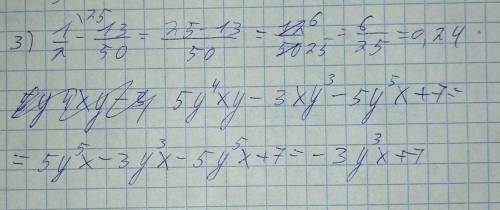 3) 1/2 \25 - 13/50 = (25-13)/50 = 12 6/50 25 = 6/25 = 0,24.
5y⁴xy - 3xy³ - 5y⁵x + 7 =
= 5y⁵x - 3y³x - 5y⁵x + 7 = -3y³x + 7